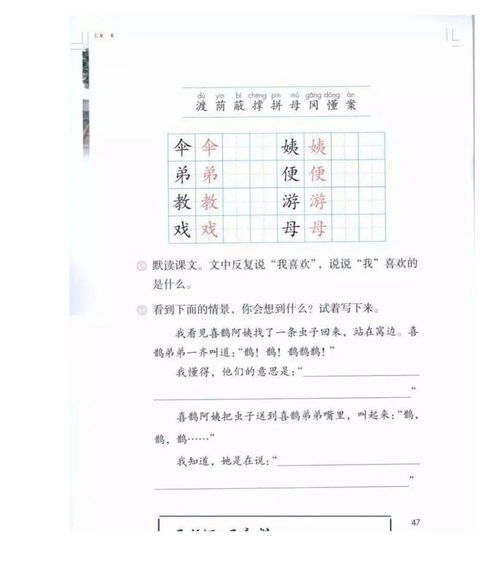 dù yìn bì chēng pīn mǔ gāng dǒng àn
渡 荫 蔽 撑 拼 母 冈 懂 案
伞 伞 姨 姨
弟 弟 便 便
教 教 游 游
戏 戏 母 母
默读课文。文中反复说“我喜欢”，说说“我”喜欢的
是什么。
看到下面的情景，你会想到什么？试着写下来。
我看见喜鹊阿姨找了一条虫子回来，站在窝边。喜
鹊弟弟一齐叫道：“鹊！鹊！鹊鹊鹊！”
我懂得，他们的意思是：“
”
喜鹊阿姨把虫子送到喜鹊弟弟嘴里，叫起来：“鹊，
鹊，鹊……”
我知道，她是在说：“
”
47